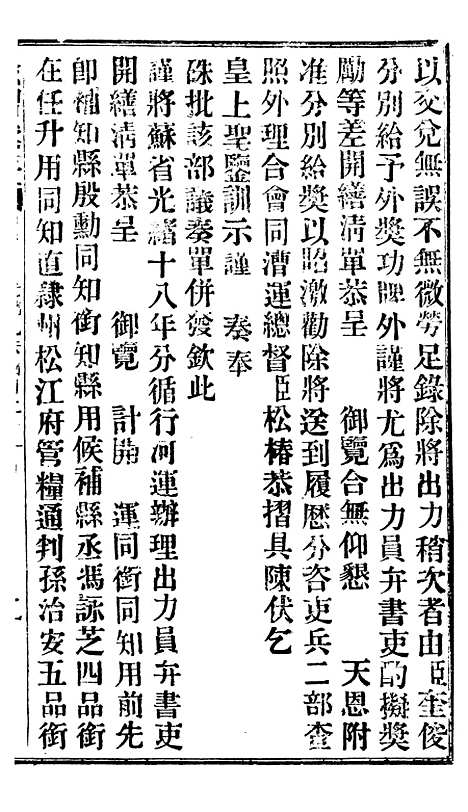 以交兌無誤不無微勞足錄除將出力稍次者由臣奎俊
分別給予外獎功牌外謹將尤為出力員弁書吏酌擬獎
勵等差開繕清單恭呈　御覽合無仰懇　天恩附
准分別給獎以昭激勸除將送到履歷分咨吏兵二部查
照外理合會同漕運總督臣松椿恭摺具陳伏乞
皇上聖鑒訓示謹　奏奉
硃批該部議奏單併發欽此
謹將蘇省光緒十八年分循行河運辦理出力員弁書吏
開繕清單恭呈　御覽　計開　運同銜同知用前先
卽補知縣殷勳同知銜知縣用候補縣丞馮詠芝四品銜
在任升用同知直隸州松江府管糧通判孫治安五品銜